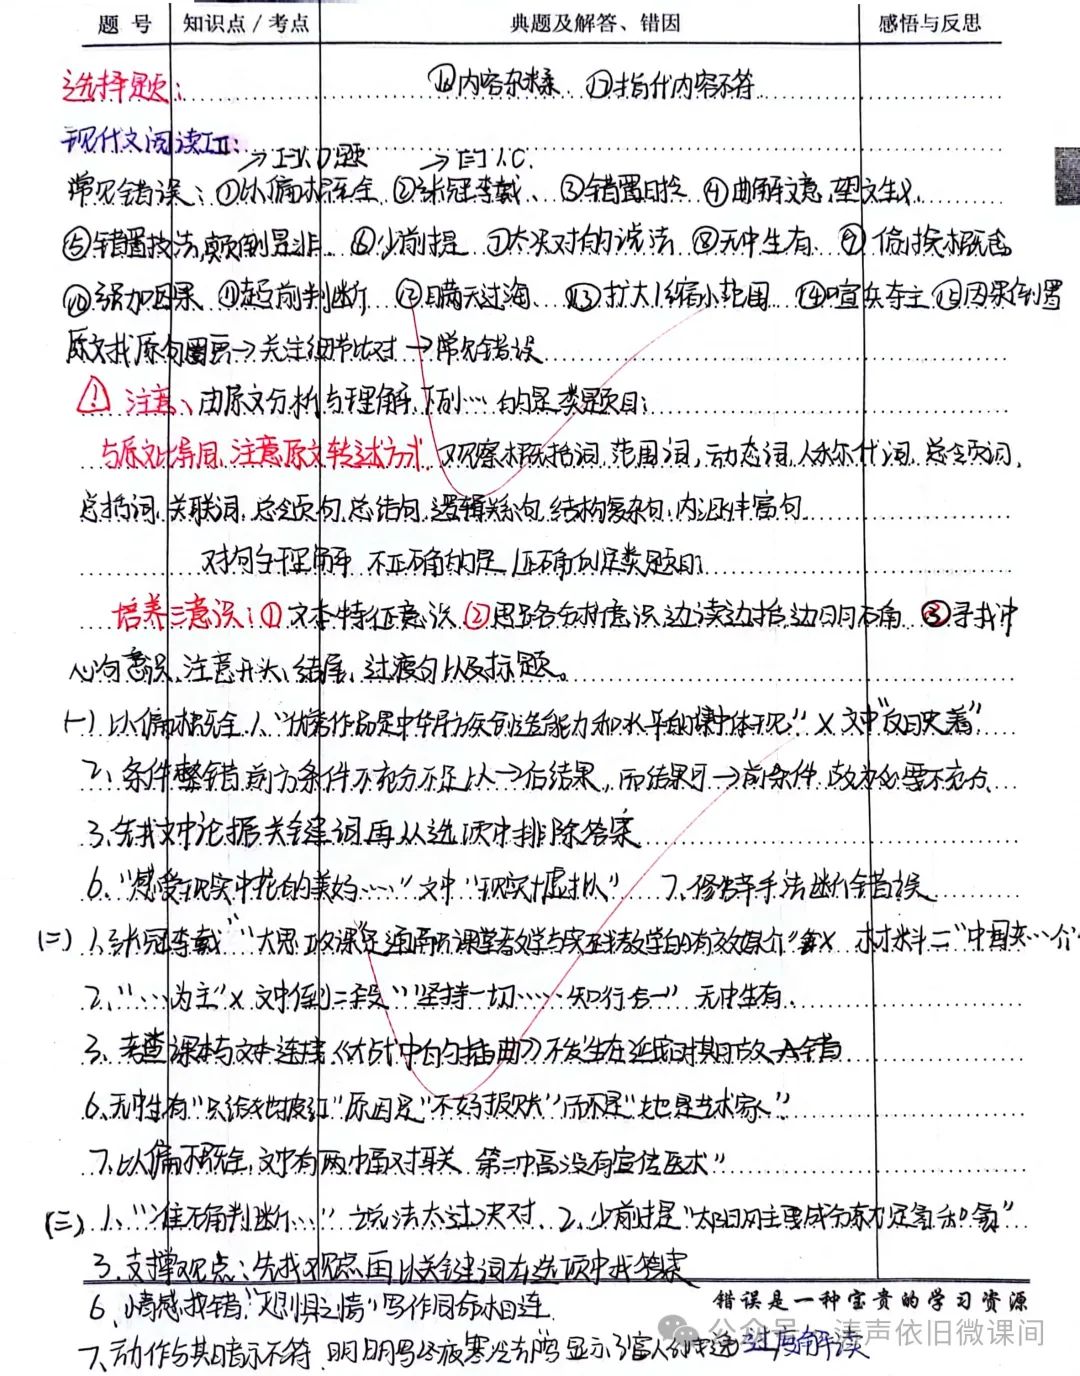 题 号 知识点／考点 典题及解答、错因 感悟与反思
选择题： ⑯内容杂糅 ⑰指代内容不符
现代文阅读ⅠⅡ：
常见错误：①以偏概全 ②张冠李戴、③错置时控 ④曲解文意,望文生义
⑤错置技法,颠倒是非 ⑥少前提 ⑦太绝对的说法 ⑧无中生有 ⑨偷换概念
⑩强加因果 ⑪超前判断 ⑫瞒天过海 ⑬扩大/缩小范围 ⑭喧宾夺主 ⑮因果倒置
原文找原句圈画→关注细节比对→常见错误
注意、由原文分析与理解,下列…的是类题目：
与原文比异同,注意原文转述方式 观察概括词,范围词,动态词,人称代词,总领词,
总括词,关联词,总领句,总结句,逻辑关系句,结构复杂句,内涵丰富句
对何与理解,不正确的是/正确的是类题目：
培养三意识：①文本特征意识 ②思路分析意识,边读边括,边明确 ③寻找中
心句意识,注意开头、结尾、过渡句以及标题。
(一) 以偏概全 1.“优秀作品是中华民族创造能力和水平的集中体现”× 文中“反映着”
2、条件整错,前方条件不充分不足以→后结果,而结果可→前条件,故为必要不充分、
3.先找文中论据关键词再从选项中排除答案
6、“感受现实中花的美妙……”文中“现实+虚拟” 7、修辞手法判断错误
(二) 1、张冠李戴“大思政课”是通高大课堂教学与实践教学的有效媒介”× 材料二“中国共…介”
2、“…为主”× 文中倒二段“坚持一切……知行合一”无中生有、
3、考查课本与文本连接《大战中的插曲》不发生在延安时期故A错
6、无中生有 原因是“不好报账”而不是“也是艺术家”
7、以偏概全,文中有两幅对联 第二幅没有宣传医术”
(三) 1、“准确判断…”说法太过绝对、2、少前提“太阳风主要成分为不定氢和氦”
3、支撑观点：先找观点再以关键词在选项中找答案
6、情感找错“恻惧之情”写作同命相连
7、动作与其暗示不符,明明写 显示了富人的 过度解读
错误是一种宝贵的学习资源
公众号 · 涛声依旧微课间